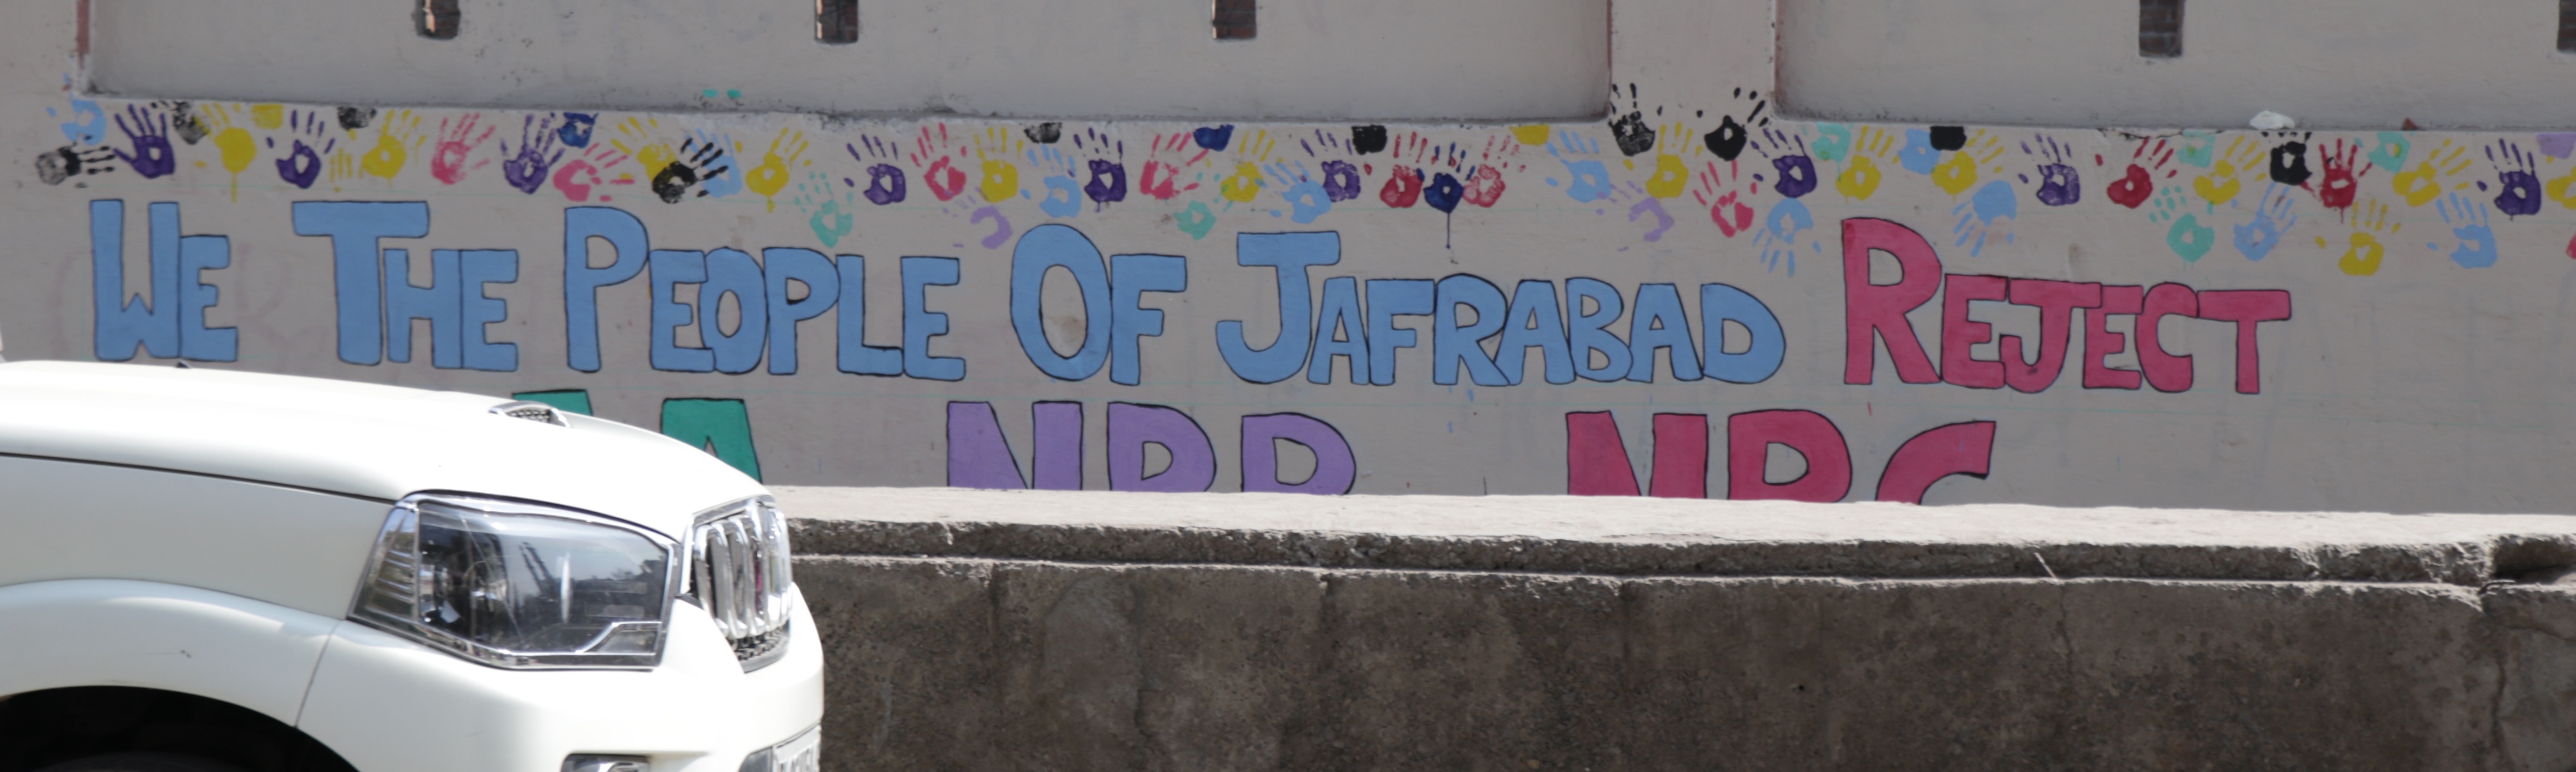 We The People Of Jafrabad Reject
NPR NRC